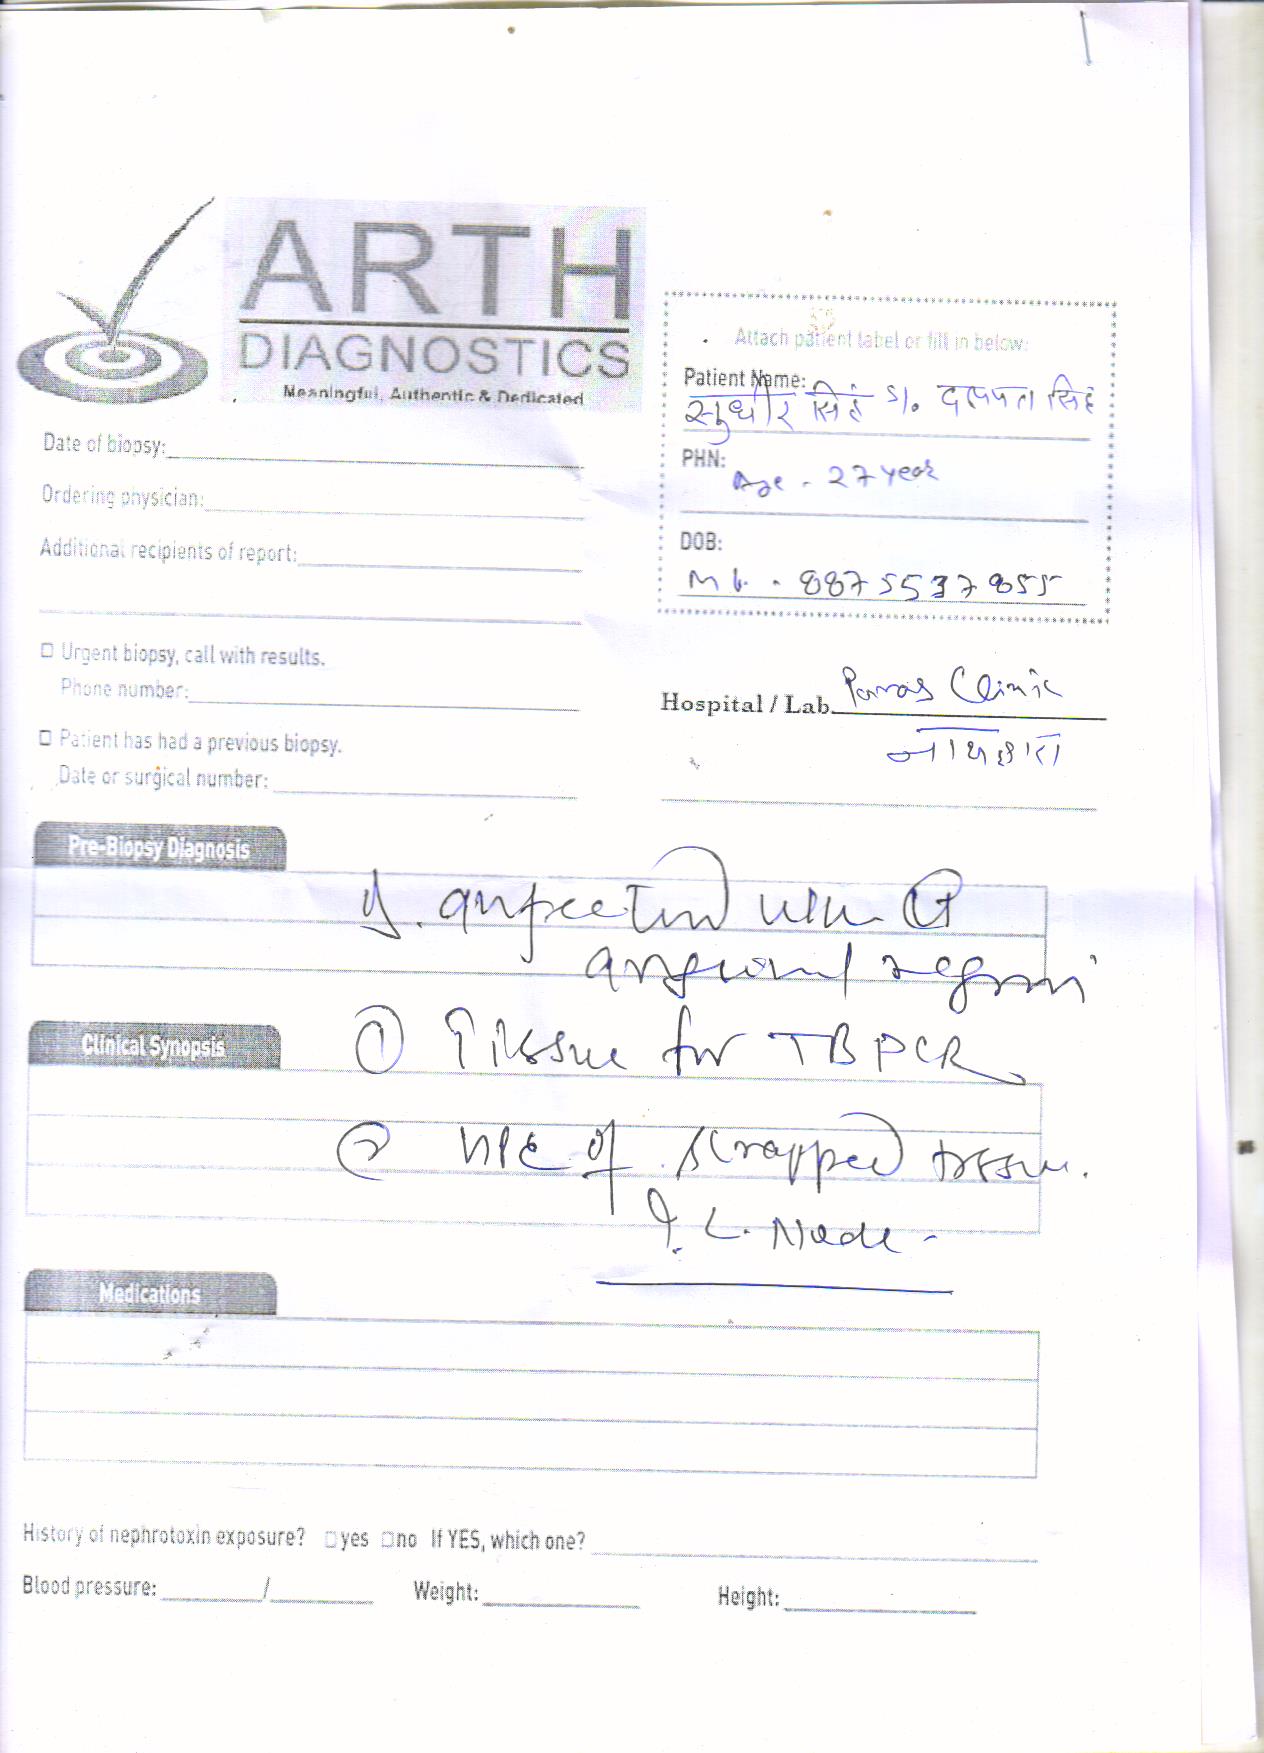 ARTH
DIAGNOSTICS
Meaningful, Authentic & Dedicated
Attach patient label or fill in below:
Patient Name:
सुधीर सिंह S/o. दलपत सिंह
PHN:
Age - 27 year
DOB:
Mb. - 8875537855
Date of biopsy:
Ordering physician:
Additional recipients of report:
☐ Urgent biopsy, call with results.
Phone number:
☐ Patient has had a previous biopsy.
Date or surgical number:
Hospital / Lab Paras Clinic
नाथद्वारा
Pre-Biopsy Diagnosis
region
Clinical Synopsis
① Tissue for TB PCR
② HPE of scrapped tissue.
Medications
History of nephrotoxin exposure? ☐ yes ☐ no If YES, which one?
Blood pressure: / Weight: Height: